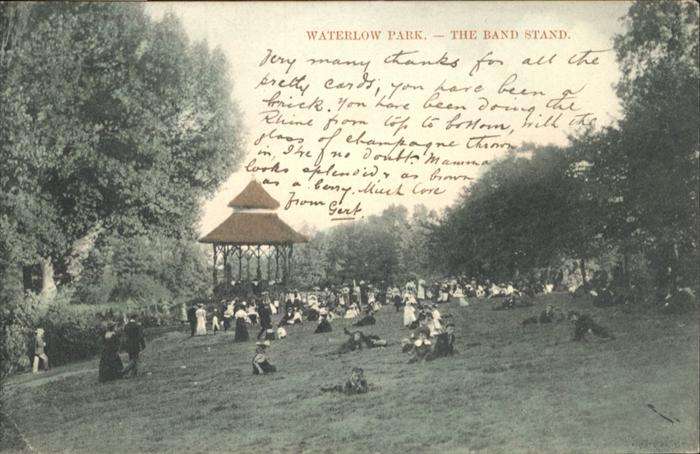 WATERLOW PARK. — THE BAND STAND.
Very many thanks for all the
pretty cards, you have been a
brick. You have been doing the
Rhine from top to bottom, with the
glass of champagne thrown
in, I've no doubt. Mamma
looks splendid & as brown
as a berry. Much love
from Gert.